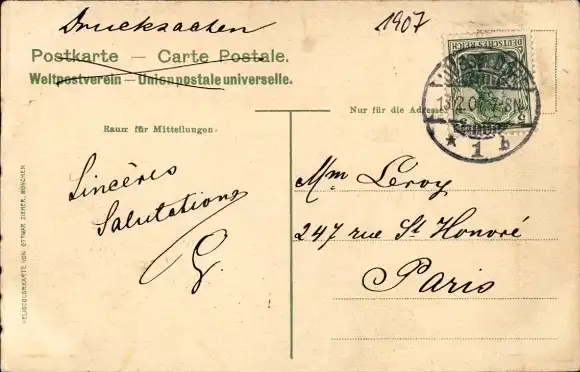 Drucksachen
1907
Postkarte — Carte Postale.
Weltpostverein — Union postale universelle.
DEUTSCHES REICH
13/2.07.7-8N.
* 1 b
Nur für die Adresse
Raum für Mitteilungen.
Sincères
Salutations
M^m Leroy
247 rue St Honoré
Paris
HELIOCOLORKARTE VON OTTMAR ZIEHER, MÜNCHEN